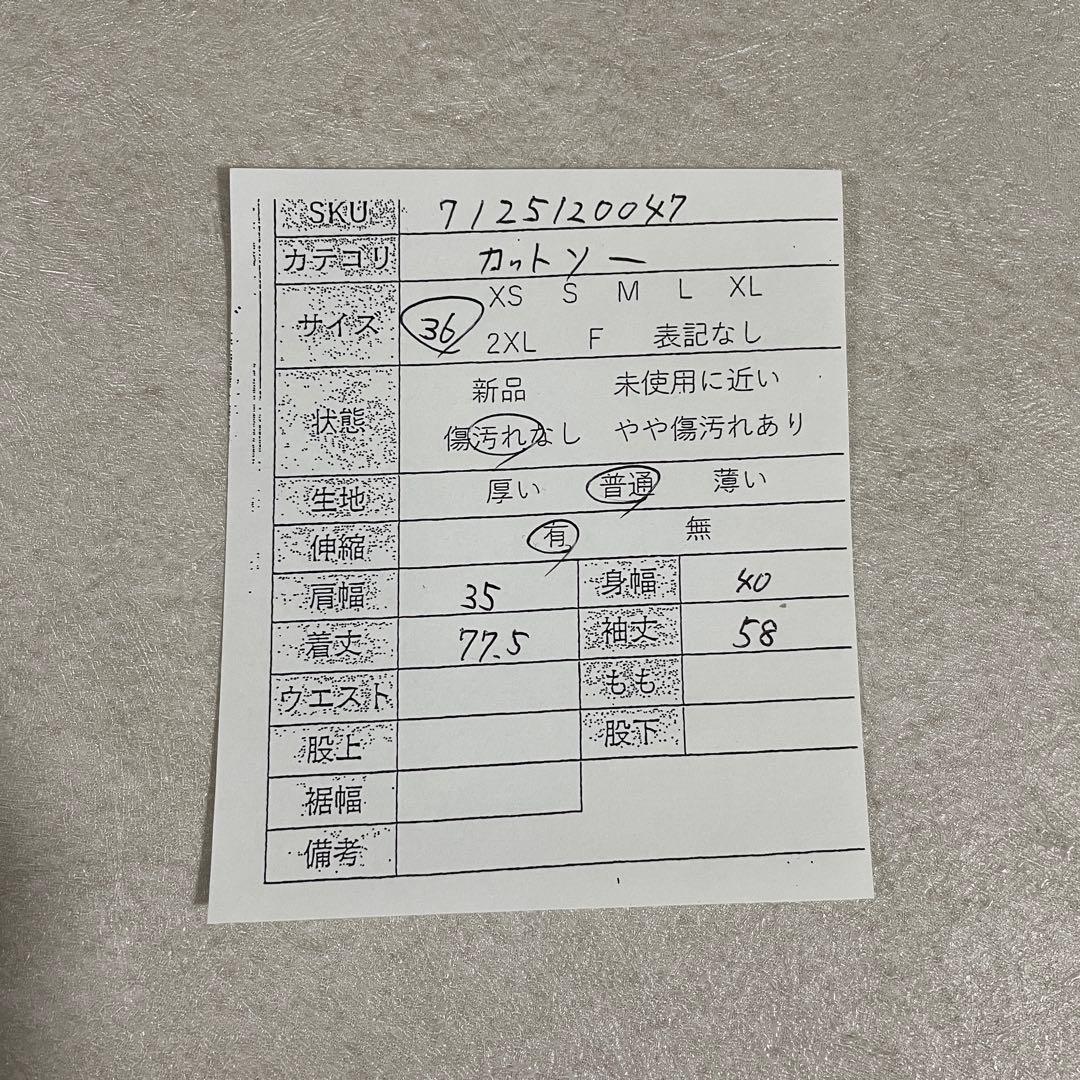 SKU 7125120047
カテゴリ カットソー
サイズ 36 XS S M L XL
2XL F 表記なし
状態 新品 未使用に近い
傷汚れなし やや傷汚れあり
生地 厚い 普通 薄い
伸縮 有 無
肩幅 35 身幅 40
着丈 77.5 袖丈 58
ウエスト もも
股上 股下
裾幅
備考